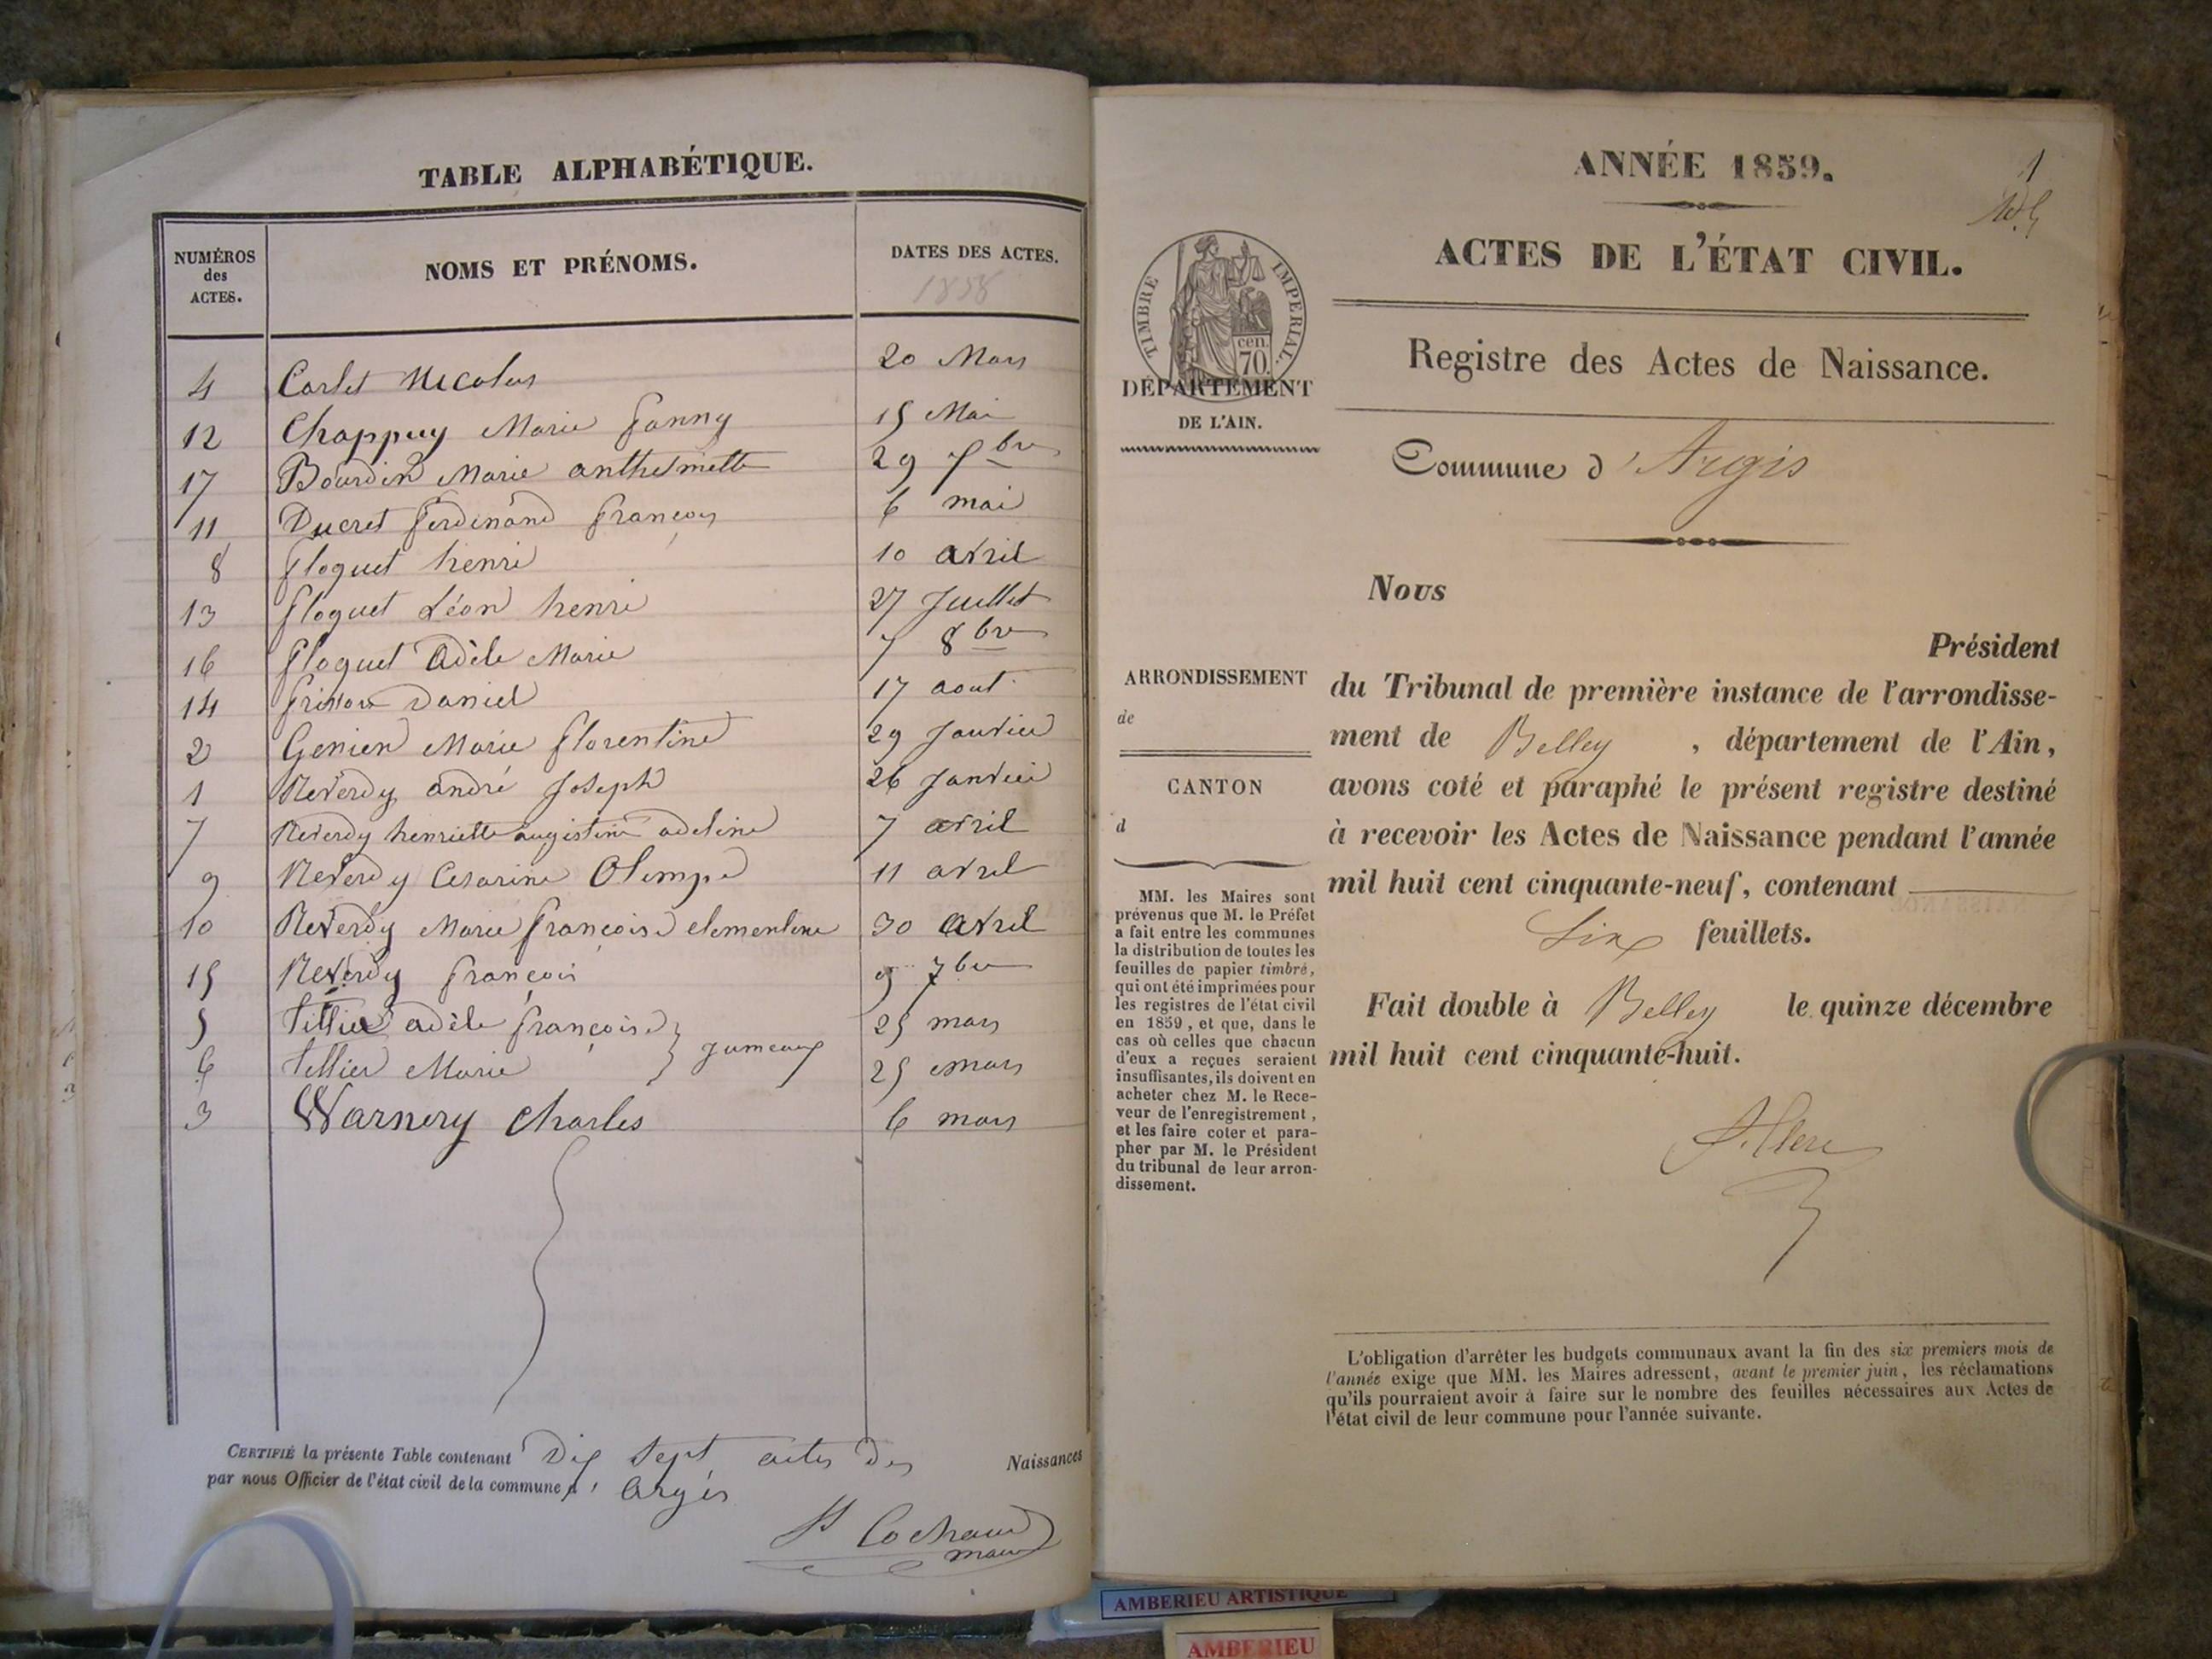 TABLE ALPHABÉTIQUE.
NUMÉROS des ACTES.
NOMS ET PRÉNOMS.
DATES DES ACTES.
1858
4 Carlet Nicolas 20 Mars
12 Chappuy Marie fanny 15 Mai
17 Bourdin Marie anthelmette 29 7bre
11 Ducret ferdinand françois 6 mai
8 floquet henri 10 avril
13 floquet Léon henri 27 Juillet
16 floquet Adèle Marie 7 8bre
14 Daniel 17 aout
2 Genien Marie florentine 29 Janvier
1 Reverdy andré Joseph 26 Janvier
7 Reverdy henriette augistine adeline 7 avril
9 Reverdy Cesarine Olimpe 11 avril
10 Reverdy Marie françoise clementine 30 avril
15 Reverdy françois 9 7bre
5 tillier adèle françoise 25 mars
jumeaux
6 tillier Marie 25 mars
3 Warnery Charles 6 mars
CERTIFIÉ la présente Table contenant Dix sept actes des Naissances
par nous Officier de l'état civil de la commune d' argis
Cochaud
maire
ANNÉE 1859.
1
ACTES DE L'ÉTAT CIVIL.
TIMBRE IMPERIAL
cen.
70.
DÉPARTEMENT
DE L'AIN.
Registre des Actes de Naissance.
Commune d'Argis
Nous
Président
ARRONDISSEMENT
de
CANTON
d
du Tribunal de première instance de l'arrondisse-
ment de Belley, département de l'Ain,
avons coté et paraphé le présent registre destiné
à recevoir les Actes de Naissance pendant l'année
mil huit cent cinquante-neuf, contenant
Six feuillets.
Fait double à Belley le quinze décembre
mil huit cent cinquante-huit.
MM. les Maires sont
prévenus que M. le Préfet
a fait entre les communes
la distribution de toutes les
feuilles de papier timbré,
qui ont été imprimées pour
les registres de l'état civil
en 1859, et que, dans le
cas où celles que chacun
d'eux a reçues seraient
insuffisantes, ils doivent en
acheter chez M. le Rece-
veur de l'enregistrement,
et les faire coter et para-
pher par M. le Président
du tribunal de leur arron-
dissement.
L'obligation d'arrêter les budgets communaux avant la fin des six premiers mois de
l'année exige que MM. les Maires adressent, avant le premier juin, les réclamations
qu'ils pourraient avoir à faire sur le nombre des feuilles nécessaires aux Actes de
l'état civil de leur commune pour l'année suivante.
AMBERIEU ARTISTIQUE
AMBERIEU